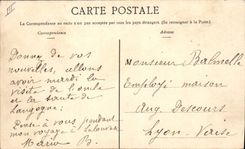 CARTE POSTALE
La Correspondance au recto n'est pas acceptée par tous les pays étrangers (Se renseigner à la Poste).
Correspondance
Adresse
Donne de vos
nouvelles, allons
avoir mardi la
visite de l'oncle
et la tante de
Langogne.
Pensé à vous pendant
mon voyage à
Marie B.
Monsieur Balmelle
Employé maison
Aug. Descours
Lyon-Vaise